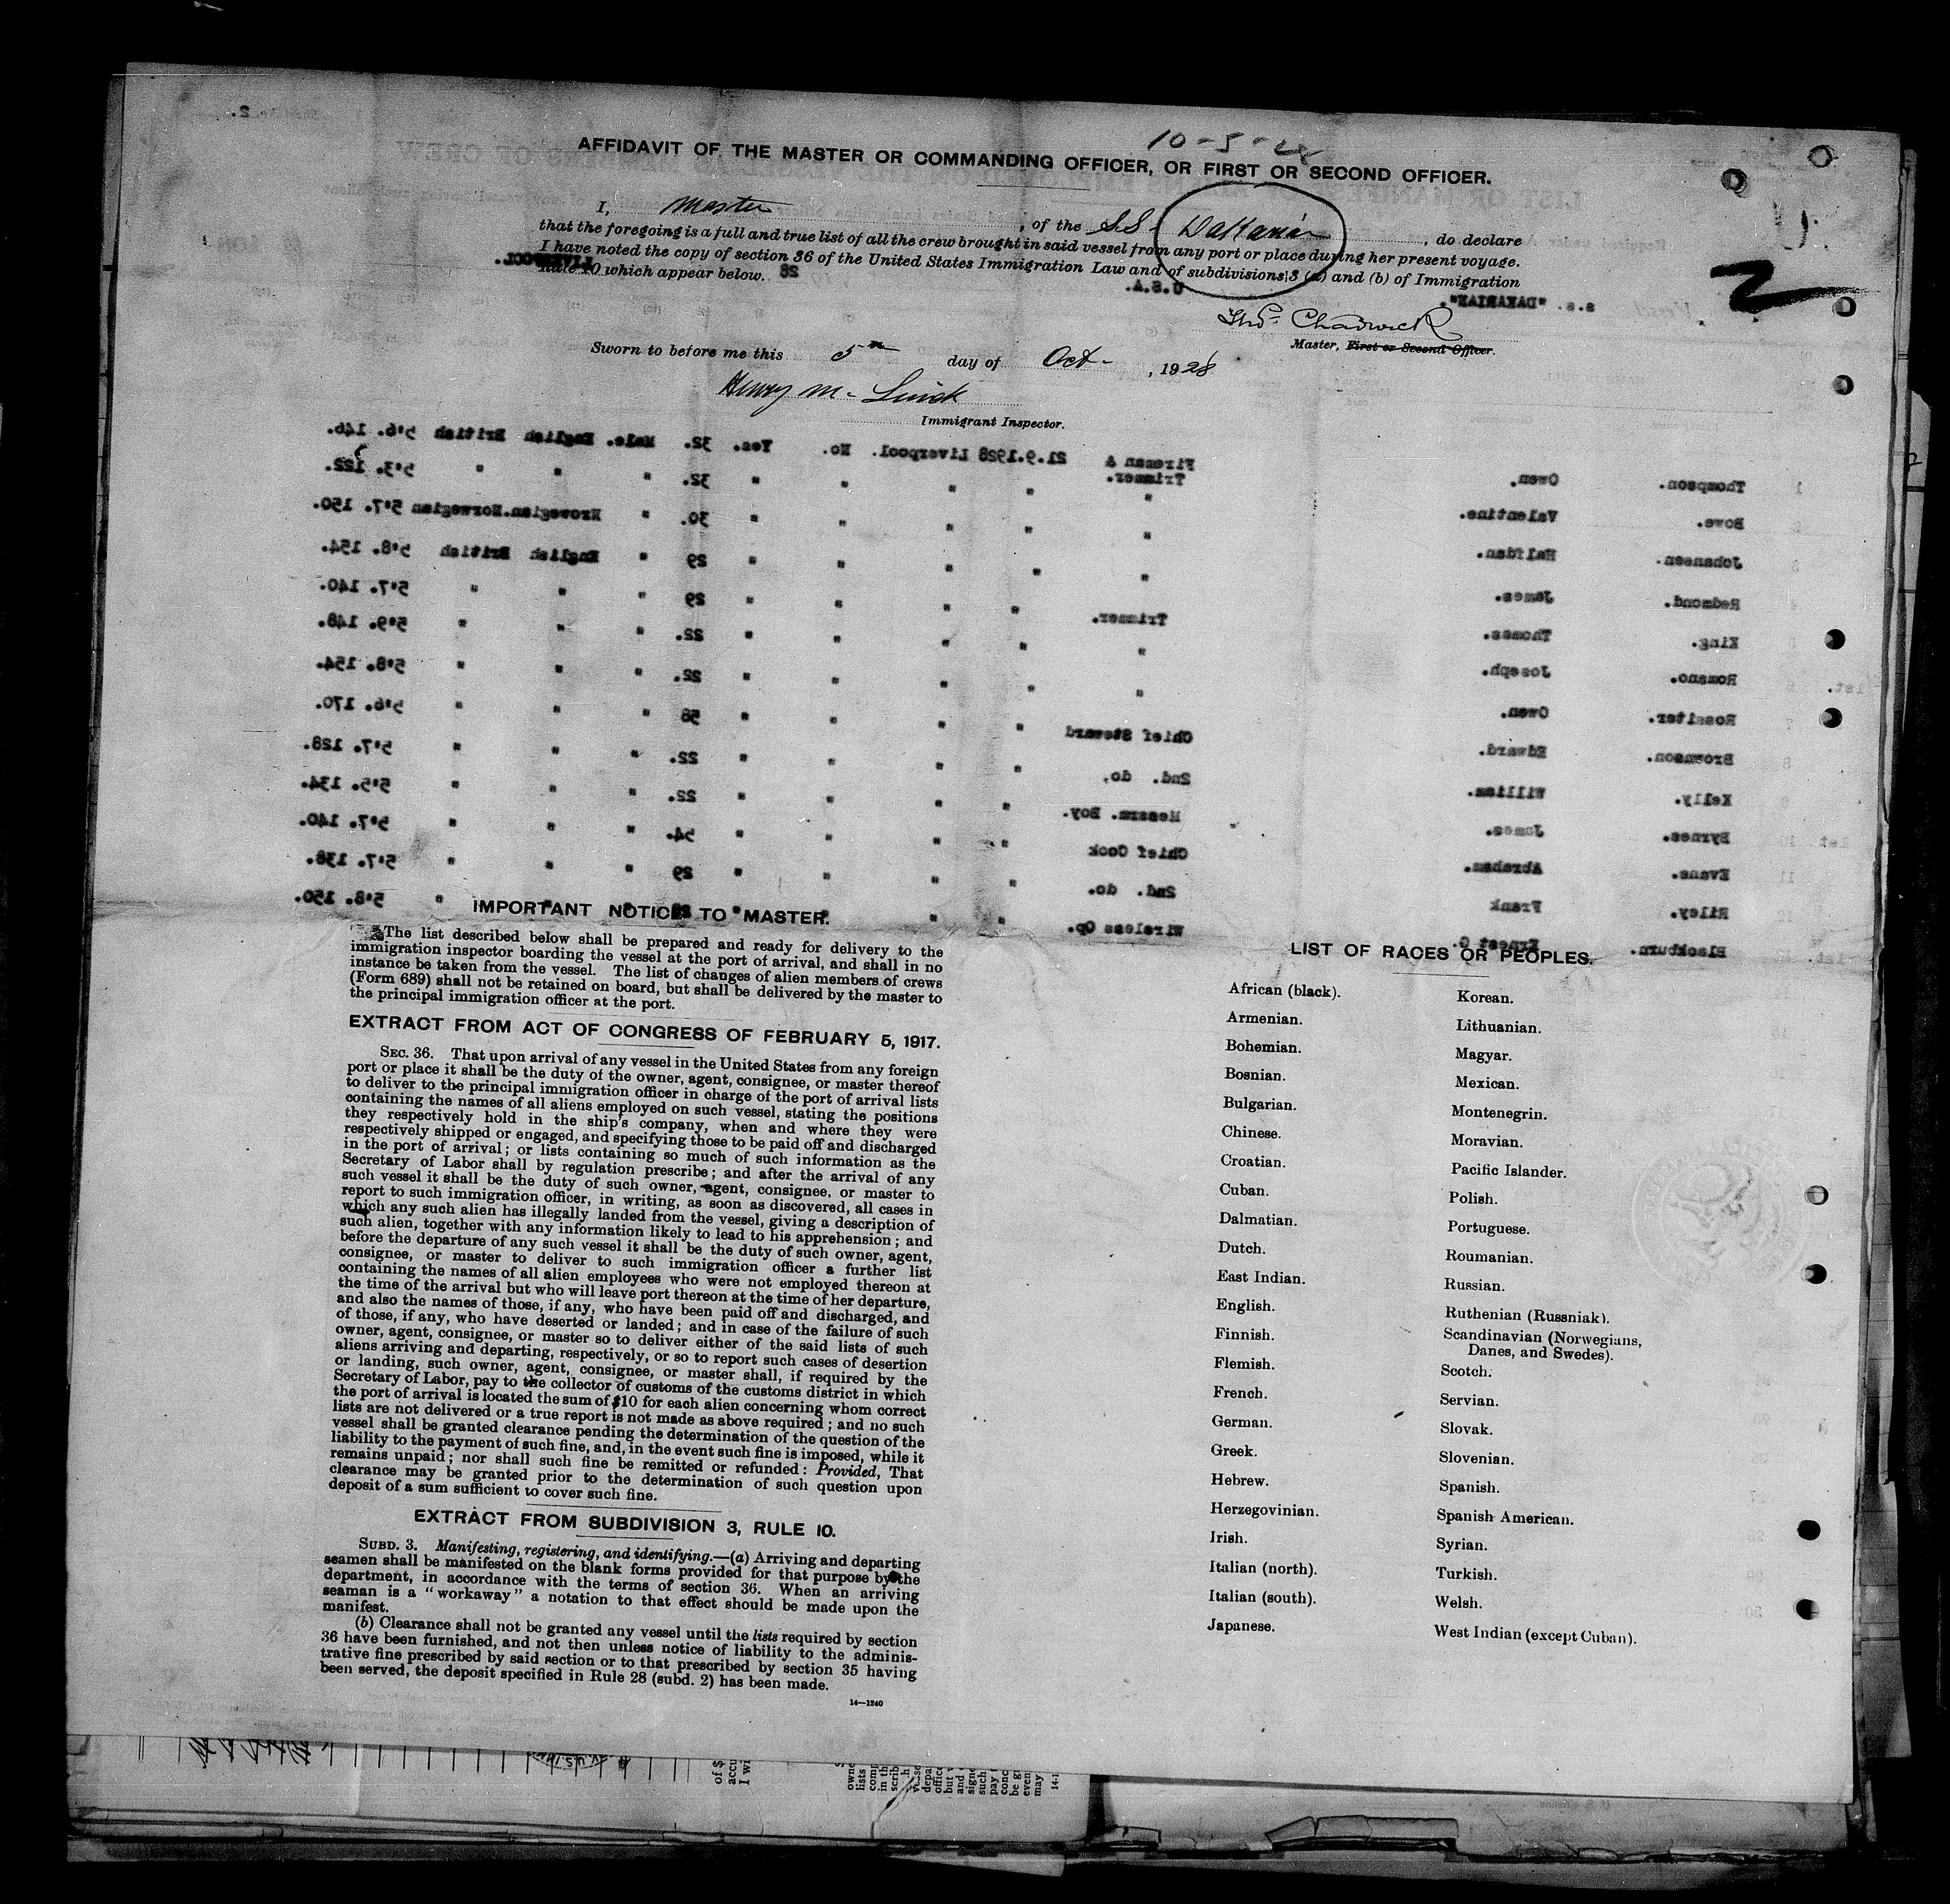 10-5-28
AFFIDAVIT OF THE MASTER OR COMMANDING OFFICER, OR FIRST OR SECOND OFFICER.
I, Master, of the S.S. Dakarian, do declare
that the foregoing is a full and true list of all the crew brought in said vessel from any port or place during her present voyage.
I have noted the copy of section 36 of the United States Immigration Law and of subdivisions 3 (a) and (b) of Immigration
Rule 10 which appear below.
LIVERPOOL.
28
U.S.A.
s.s. "DAKARIAN".
2
Thos. Chadwick
Master, First or Second Officer.
Sworn to before me this 5th day of Oct-, 1928
Henry M.
Immigrant Inspector.
1 Thompson. Owen. Fireman & Trimmer. 21.9.1928 Liverpool. No. Yes. 32. Male. English British 5'6. 146.
2 Bowe. Valentine. " " " " " 32. " " " 5'3. 122.
3 Johansen. Halfdan. " " " " " 30. " Nrowegian. Norwegian 5'7. 150.
4 Redmond. James. " " " " " 29 " English British 5'8. 154.
5 King. Thomas. Trimmer. " " " " 29 " " " 5'7. 140.
6 Romano. Joseph. " " " " " 22. " " " 5'9. 148.
7 Rossiter. Owen. " " " " " 22. " " " 5'8. 154.
8 Brownson. Edward. Chief Steward " " " " 58 " " " 5'6. 170.
9 Kelly. William. 2nd. do. " " " " 22. " " " 5'7. 128.
10 Byrnes. James. Messrm. Boy. " " " " 22. " " " 5'5. 134.
11 Evans. Abraham. Chief Cook " " " " 54. " " " 5'7. 140.
12 Riley. Frank 2nd. do. " " " " 29 " " " 5'7. 138.
Blackburn. Ernest G. Wireless Op. " " " " " " " 5'8. 150.
IMPORTANT NOTICE TO MASTER.
The list described below shall be prepared and ready for delivery to the
immigration inspector boarding the vessel at the port of arrival, and shall in no
instance be taken from the vessel. The list of changes of alien members of crews
(Form 689) shall not be retained on board, but shall be delivered by the master to
the principal immigration officer at the port.
EXTRACT FROM ACT OF CONGRESS OF FEBRUARY 5, 1917.
SEC. 36. That upon arrival of any vessel in the United States from any foreign
port or place it shall be the duty of the owner, agent, consignee, or master thereof
to deliver to the principal immigration officer in charge of the port of arrival lists
containing the names of all aliens employed on such vessel, stating the positions
they respectively hold in the ship's company, when and where they were
respectively shipped or engaged, and specifying those to be paid off and discharged
in the port of arrival; or lists containing so much of such information as the
Secretary of Labor shall by regulation prescribe; and after the arrival of any
such vessel it shall be the duty of such owner, agent, consignee, or master to
report to such immigration officer, in writing, as soon as discovered, all cases in
which any such alien has illegally landed from the vessel, giving a description of
such alien, together with any information likely to lead to his apprehension; and
before the departure of any such vessel it shall be the duty of such owner, agent,
consignee, or master to deliver to such immigration officer a further list
containing the names of all alien employees who were not employed thereon at
the time of the arrival but who will leave port thereon at the time of her departure,
and also the names of those, if any, who have been paid off and discharged, and
of those, if any, who have deserted or landed; and in case of the failure of such
owner, agent, consignee, or master so to deliver either of the said lists of such
aliens arriving and departing, respectively, or so to report such cases of desertion
or landing, such owner, agent, consignee, or master shall, if required by the
Secretary of Labor, pay to the collector of customs of the customs district in which
the port of arrival is located the sum of $10 for each alien concerning whom correct
lists are not delivered or a true report is not made as above required; and no such
vessel shall be granted clearance pending the determination of the question of the
liability to the payment of such fine, and, in the event such fine is imposed, while it
remains unpaid; nor shall such fine be remitted or refunded: Provided, That
clearance may be granted prior to the determination of such question upon
deposit of a sum sufficient to cover such fine.
EXTRACT FROM SUBDIVISION 3, RULE 10.
SUBD. 3. Manifesting, registering, and identifying.—(a) Arriving and departing
seamen shall be manifested on the blank forms provided for that purpose by the
department, in accordance with the terms of section 36. When an arriving
seaman is a "workaway" a notation to that effect should be made upon the
manifest.
(b) Clearance shall not be granted any vessel until the lists required by section
36 have been furnished, and not then unless notice of liability to the adminis-
trative fine prescribed by said section or to that prescribed by section 35 having
been served, the deposit specified in Rule 28 (subd. 2) has been made.
14—1240
LIST OF RACES OR PEOPLES.
African (black).
Armenian.
Bohemian.
Bosnian.
Bulgarian.
Chinese.
Croatian.
Cuban.
Dalmatian.
Dutch.
East Indian.
English.
Finnish.
Flemish.
French.
German.
Greek.
Hebrew.
Herzegovinian.
Irish.
Italian (north).
Italian (south).
Japanese.
Korean.
Lithuanian.
Magyar.
Mexican.
Montenegrin.
Moravian.
Pacific Islander.
Polish.
Portuguese.
Roumanian.
Russian.
Ruthenian (Russniak).
Scandinavian (Norwegians,
Danes, and Swedes).
Scotch.
Servian.
Slovak.
Slovenian.
Spanish.
Spanish American.
Syrian.
Turkish.
Welsh.
West Indian (except Cuban).